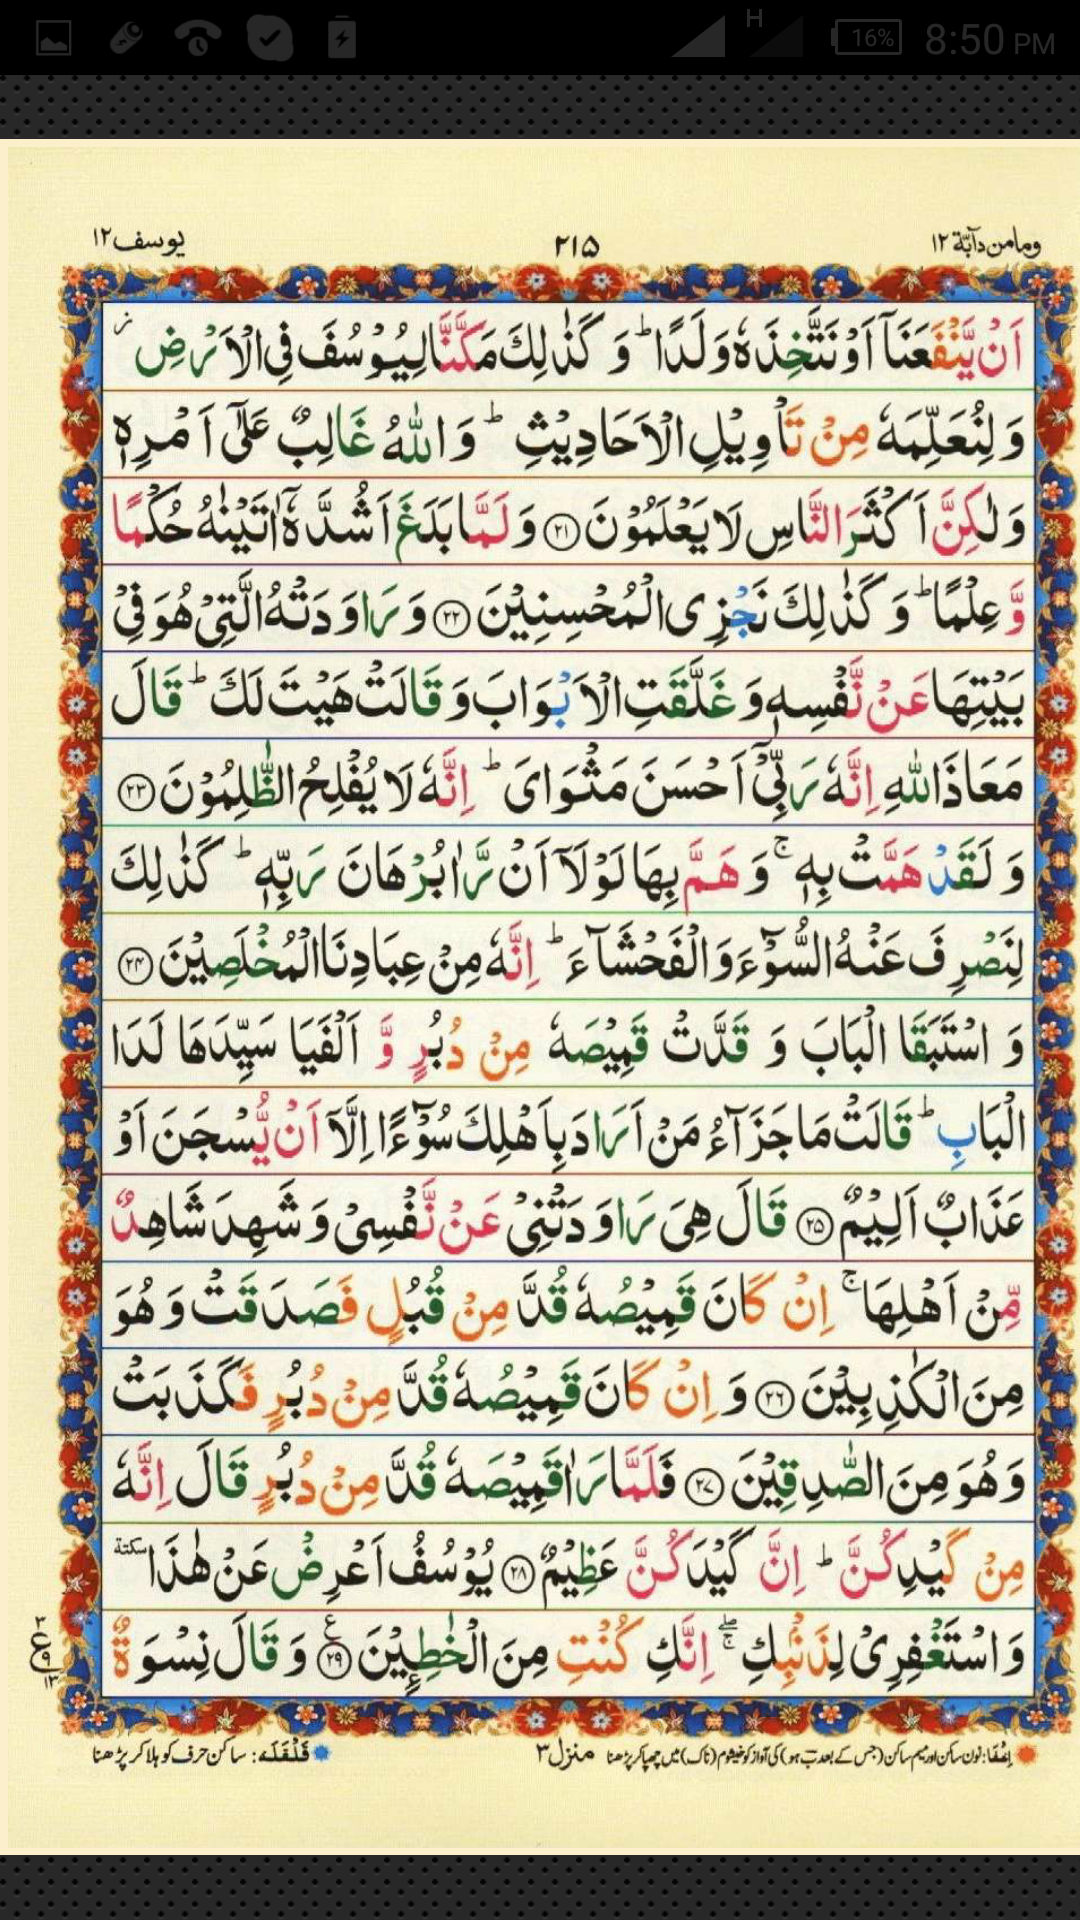 16%
H
8:50 PM
ومامن دآبّة ۱۲
۲۱۵
یوسف ۱۲
اَنْ یَّنْفَعَنَاۤ اَوْ نَتَّخِذَهٗ وَلَدًا ؕ وَ كَذٰلِكَ مَكَّنَّا لِیُوْسُفَ فِی الْاَرْضِ ؗ
وَ لِنُعَلِّمَهٗ مِنْ تَاْوِیْلِ الْاَحَادِیْثِ ؕ وَ اللّٰهُ غَالِبٌ عَلٰۤی اَمْرِهٖ
وَ لٰكِنَّ اَكْثَرَ النَّاسِ لَا یَعْلَمُوْنَ ۝۲۱ وَ لَمَّا بَلَغَ اَشُدَّهٗۤ اٰتَیْنٰهُ حُكْمًا
وَّ عِلْمًا ؕ وَ كَذٰلِكَ نَجْزِی الْمُحْسِنِیْنَ ۝۲۲ وَ رَاوَدَتْهُ الَّتِیْ هُوَ فِیْ
بَیْتِهَا عَنْ نَّفْسِهٖ وَ غَلَّقَتِ الْاَبْوَابَ وَ قَالَتْ هَیْتَ لَكَ ؕ قَالَ
مَعَاذَ اللّٰهِ اِنَّهٗ رَبِّیْۤ اَحْسَنَ مَثْوَایَ ؕ اِنَّهٗ لَا یُفْلِحُ الظّٰلِمُوْنَ ۝۲۳
وَ لَقَدْ هَمَّتْ بِهٖ ۚ وَ هَمَّ بِهَا لَوْلَاۤ اَنْ رَّاٰ بُرْهَانَ رَبِّهٖ ؕ كَذٰلِكَ
لِنَصْرِفَ عَنْهُ السُّوْٓءَ وَ الْفَحْشَآءَ ؕ اِنَّهٗ مِنْ عِبَادِنَا الْمُخْلَصِیْنَ ۝۲۴
وَ اسْتَبَقَا الْبَابَ وَ قَدَّتْ قَمِیْصَهٗ مِنْ دُبُرٍ وَّ اَلْفَیَا سَیِّدَهَا لَدَا
الْبَابِ ؕ قَالَتْ مَا جَزَآءُ مَنْ اَرَادَ بِاَهْلِكَ سُوْٓءًا اِلَّاۤ اَنْ یُّسْجَنَ اَوْ
عَذَابٌ اَلِیْمٌ ۝۲۵ قَالَ هِیَ رَاوَدَتْنِیْ عَنْ نَّفْسِیْ وَ شَهِدَ شَاهِدٌ
مِّنْ اَهْلِهَا ۚ اِنْ كَانَ قَمِیْصُهٗ قُدَّ مِنْ قُبُلٍ فَصَدَقَتْ وَ هُوَ
مِنَ الْكٰذِبِیْنَ ۝۲۶ وَ اِنْ كَانَ قَمِیْصُهٗ قُدَّ مِنْ دُبُرٍ فَكَذَبَتْ
وَ هُوَ مِنَ الصّٰدِقِیْنَ ۝۲۷ فَلَمَّا رَاٰ قَمِیْصَهٗ قُدَّ مِنْ دُبُرٍ قَالَ اِنَّهٗ
مِنْ كَیْدِكُنَّ ؕ اِنَّ كَیْدَكُنَّ عَظِیْمٌ ۝۲۸ یُوْسُفُ اَعْرِضْ عَنْ هٰذَا سكتة
وَ اسْتَغْفِرِیْ لِذَنْۢبِكِ ۖۚ اِنَّكِ كُنْتِ مِنَ الْخٰطِـِٕیْنَ ۝۲۹ ع وَ قَالَ نِسْوَةٌ
۳
ع
۹
۱۳
اِخفا: نون ساکن اور میم ساکن (جس کے بعد ب ہو) کی آواز کو خیشوم (ناک) میں چھپا کر پڑھنا
منزل ۳
قَلْقَلَه: ساکن حرف کو ہلا کر پڑھنا